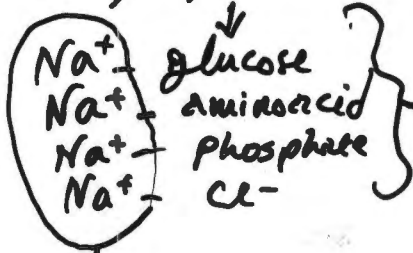 Na⁺ - glucose
Na⁺ - aminoacid
Na⁺ - phosphate
Na⁺ - Cl⁻